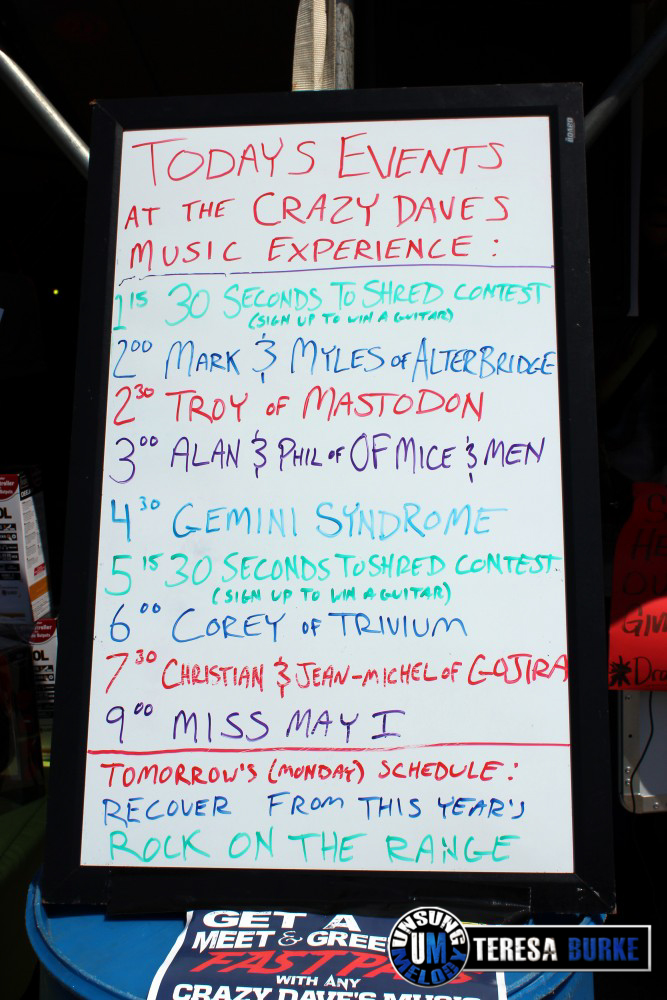 TODAYS EVENTS
AT THE CRAZY DAVES
MUSIC EXPERIENCE:
1 15 30 SECONDS TO SHRED CONTEST
(SIGN UP TO WIN A GUITAR)
2 00 MARK & MYLES OF ALTERBRIDGE
2 30 TROY OF MASTODON
3 00 ALAN & PHIL OF OF MICE & MEN
4 30 GEMINI SYNDROME
5 15 30 SECONDS TO SHRED CONTEST
(SIGN UP TO WIN A GUITAR)
6 00 COREY OF TRIVIUM
7 30 CHRISTIAN & JEAN-MICHEL OF GOJIRA
9 00 MISS MAY I
TOMORROW'S (MONDAY) SCHEDULE:
RECOVER FROM THIS YEAR'S
ROCK ON THE RANGE
GET A
MEET & GREE
FAST PA
WITH ANY
CRAZY DAVE'S MUSIC
UNSUNG
UM
MELODY
TERESA BURKE